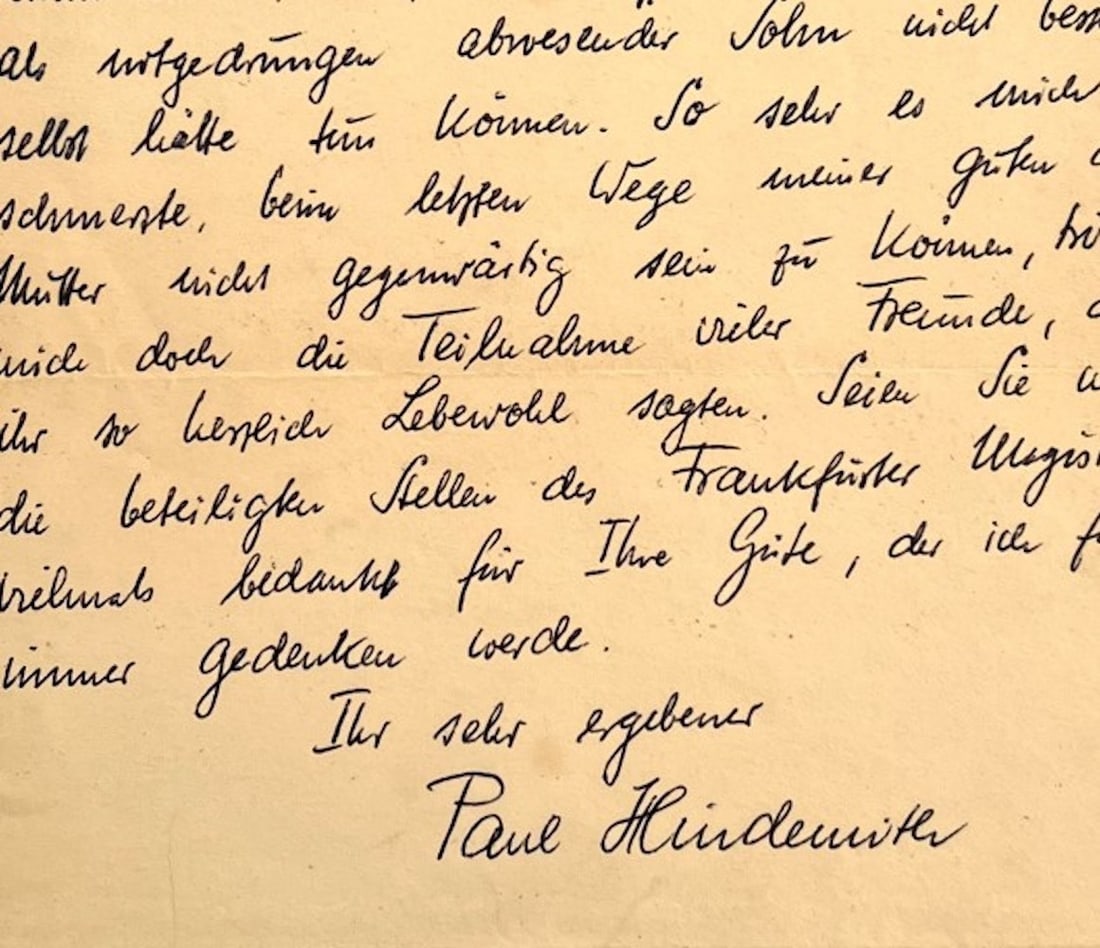 als notgedrungen abwesender Sohn nicht bess
selbst hätte tun können. So sehr es mich
schmerzte, beim letzten Wege meiner guten
Mutter nicht gegenwärtig sein zu können, trö
mich doch die Teilnahme vieler Freunde, d
ihr so herzlich Lebewohl sagten. Seien Sie u
die beteiligten Stellen des Frankfurter Magis
vielmals bedankt für Ihre Güte, der ich für
immer gedenken werde.
Ihr sehr ergebener
Paul Hindemith